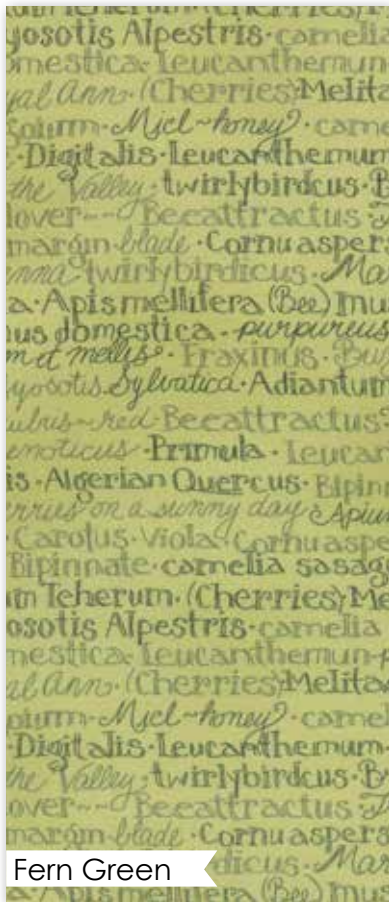 yosotis Alpestris · camelia
omestica · Leucanthemun
yal Ann · (Cherries) Melita
Mjel ~ honey) · came
· Digitalis · Leucanthemum
the Valley · twirlybirdcus · B
lover -- Beeattractus ·
margin blade · Cornu asper
nna twirlybirdicus · Ma
a · Apis mellifera (Bee) mu
us domestica · purpureus
m et mellis · Fraxinus · Bu
yosotis Sylvatica · Adiantum
ubris ~ red Beeattractus ·
enoticus · Primula · Leucan
is · Algerian Quercus · Bipinn
erries on a sunny day · Apium
· Carolus · Viola · Cornu aspe
Bipinnate · camelia sasaq
m Teherum · (Cherries) Me
osotis Alpestris · camelia
mestica · Leucanthemun
al Ann · (Cherries) Melita
Mjel ~ honey) · came
· Digitalis · Leucanthemum ·
he Valley · twirlybirdcus · B
over -- Beeattractus ·
margin blade · Cornu aspers
dicus · Mar
Fern Green
a · Apis mellifera (Bee) mus